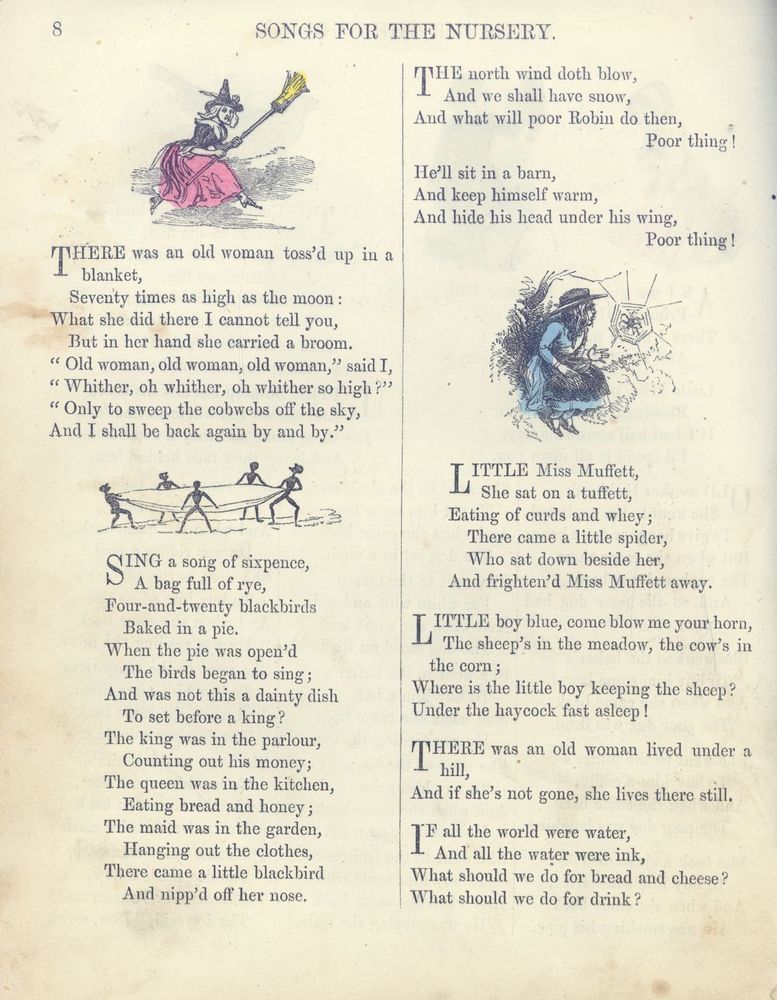 8
SONGS FOR THE NURSERY.
THERE was an old woman toss'd up in a
blanket,
Seventy times as high as the moon :
What she did there I cannot tell you,
But in her hand she carried a broom.
“ Old woman, old woman, old woman,” said I,
“ Whither, oh whither, oh whither so high ?”
“ Only to sweep the cobwebs off the sky,
And I shall be back again by and by.”
SING a song of sixpence,
A bag full of rye,
Four-and-twenty blackbirds
Baked in a pie.
When the pie was open'd
The birds began to sing ;
And was not this a dainty dish
To set before a king ?
The king was in the parlour,
Counting out his money;
The queen was in the kitchen,
Eating bread and honey ;
The maid was in the garden,
Hanging out the clothes,
There came a little blackbird
And nipp'd off her nose.
THE north wind doth blow,
And we shall have snow,
And what will poor Robin do then,
Poor thing !
He'll sit in a barn,
And keep himself warm,
And hide his head under his wing,
Poor thing !
LITTLE Miss Muffett,
She sat on a tuffett,
Eating of curds and whey ;
There came a little spider,
Who sat down beside her,
And frighten'd Miss Muffett away.
LITTLE boy blue, come blow me your horn,
The sheep's in the meadow, the cow's in
the corn ;
Where is the little boy keeping the sheep ?
Under the haycock fast asleep !
THERE was an old woman lived under a
hill,
And if she's not gone, she lives there still.
IF all the world were water,
And all the water were ink,
What should we do for bread and cheese ?
What should we do for drink ?